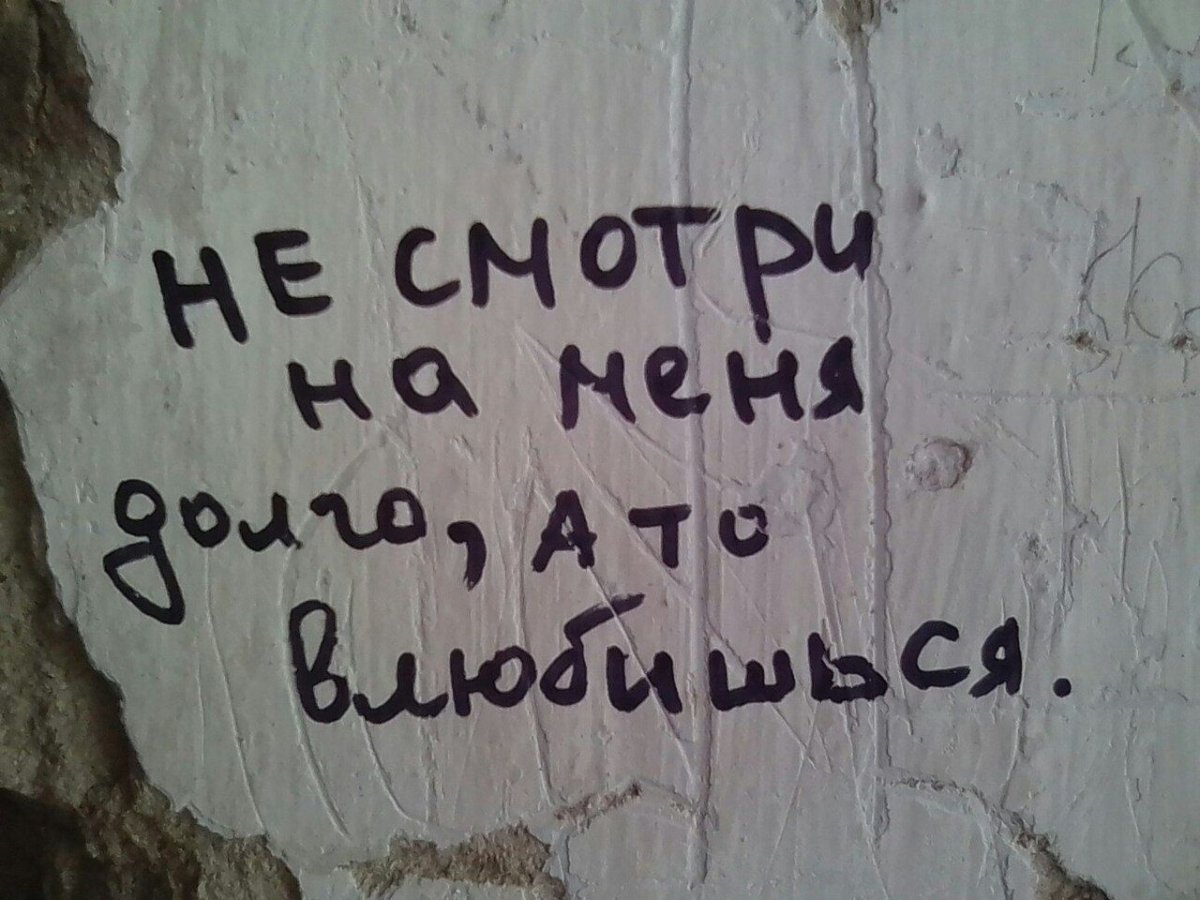 НЕ СМОТРИ
на меня
долго, А то
влюбишься.